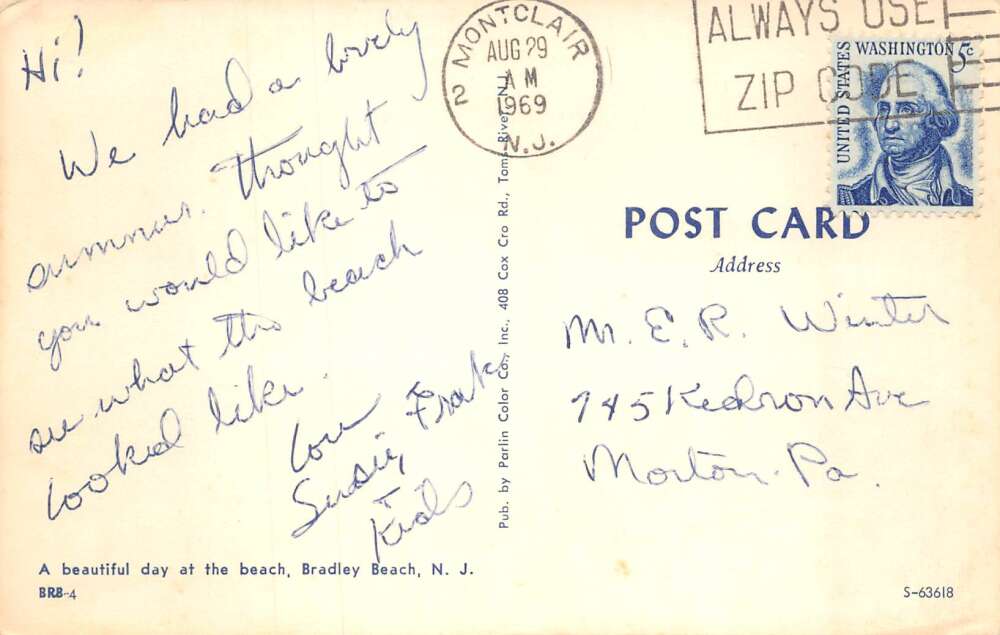 Hi!
We had a lovely
summer. thought
you would like to
see what the beach
looked like.
Love
Susie, Frak
+ Kids
A beautiful day at the beach, Bradley Beach, N. J.
BRB-4
Pub. by Parlin Color Co., Inc., 408 Cox Cro Rd., Toms River, N.J.
MONTCLAIR
AUG 29
AM
1969
N.J.
2
ALWAYS USE
ZIP CODE
UNITED STATES WASHINGTON 5c
POST CARD
Address
Mr. E. R. Winter
745 Kedron Ave
Morton Pa.
S-63618